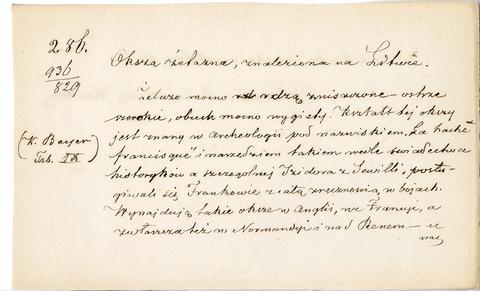 286.
936
829
(K. Beyer
Tab. IX)
Oksza żelazna, znaleziona na Litwie.
Żelazo mocno rdzą zniszczone – ostrze
szerokie, obuch mocno wygięty. Kształt tej okszy
jest znany w Archeologii pod nazwiskiem „La hache
francisque" i narzędziem takiem wedle świadectwa
historyków a szczególniej Izidora z Sewilli, posłu-
giwali się Frankowie z całą zręcznością, w bojach.
Wynajdują takie oksze w Anglii, we Francji, a
zwłaszcza też w Normandyi i nad Renem – u
nas